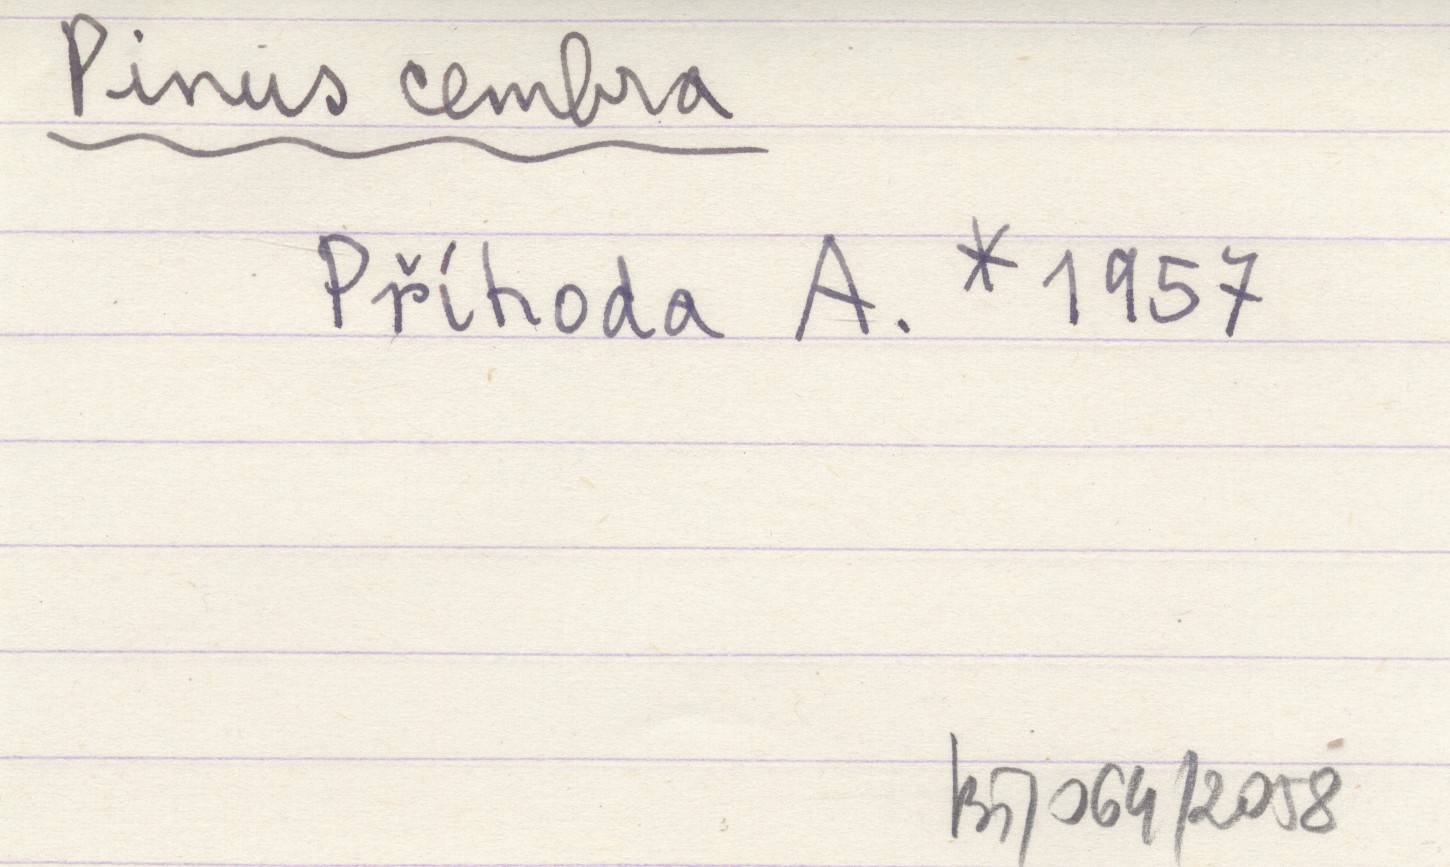 Pinus cembra
Příhoda A. * 1957
064/2058